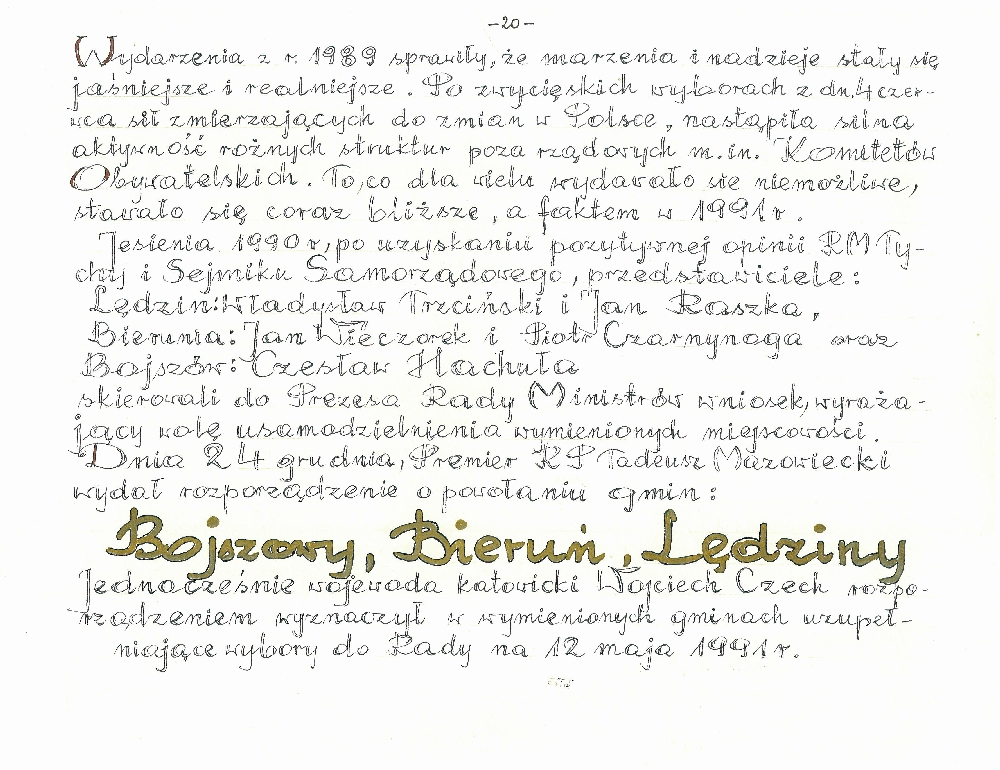 -20-
Wydarzenia z r. 1989 sprawiły, że marzenia i nadzieje stały się
jaśniejsze i realniejsze. Po zwycięskich wyborach z dn. 4 czer-
wca sił zmierzających do zmian w Polsce, nastąpiła silna
aktywność rożnych struktur poza rządowych m.in. Komitetów
Obywatelskich. To, co dla wielu wydawało sie niemożliwe,
stawało się coraz bliższe, a faktem w 1991 r.
Jesienia 1990 r, po uzyskaniu pozytywnej opinii RM Ty-
chy i Sejmiku Samorządowego, przedstawiciele:
Lędzin: Władysław Trzciński i Jan Raszka,
Bierunia: Jan Wieczorek i Piotr Czarnynoga oraz
Bojszów: Czesław Hachuła
skierowali do Prezesa Rady Ministrów wniosek, wyraża-
jący wolę usamodzielnienia wymienionych miejscowości.
Dnia 24 grudnia, Premier RP Tadeusz Mazowiecki
wydał rozporządzenie o powołaniu gmin:
Bojszowy, Bieruń, Lędziny
Jednocześnie wojewoda katowicki Wojciech Czech rozpo-
rządzeniem wyznaczył w wymienionych gminach uzupeł-
niające wybory do Rady na 12 maja 1991 r.